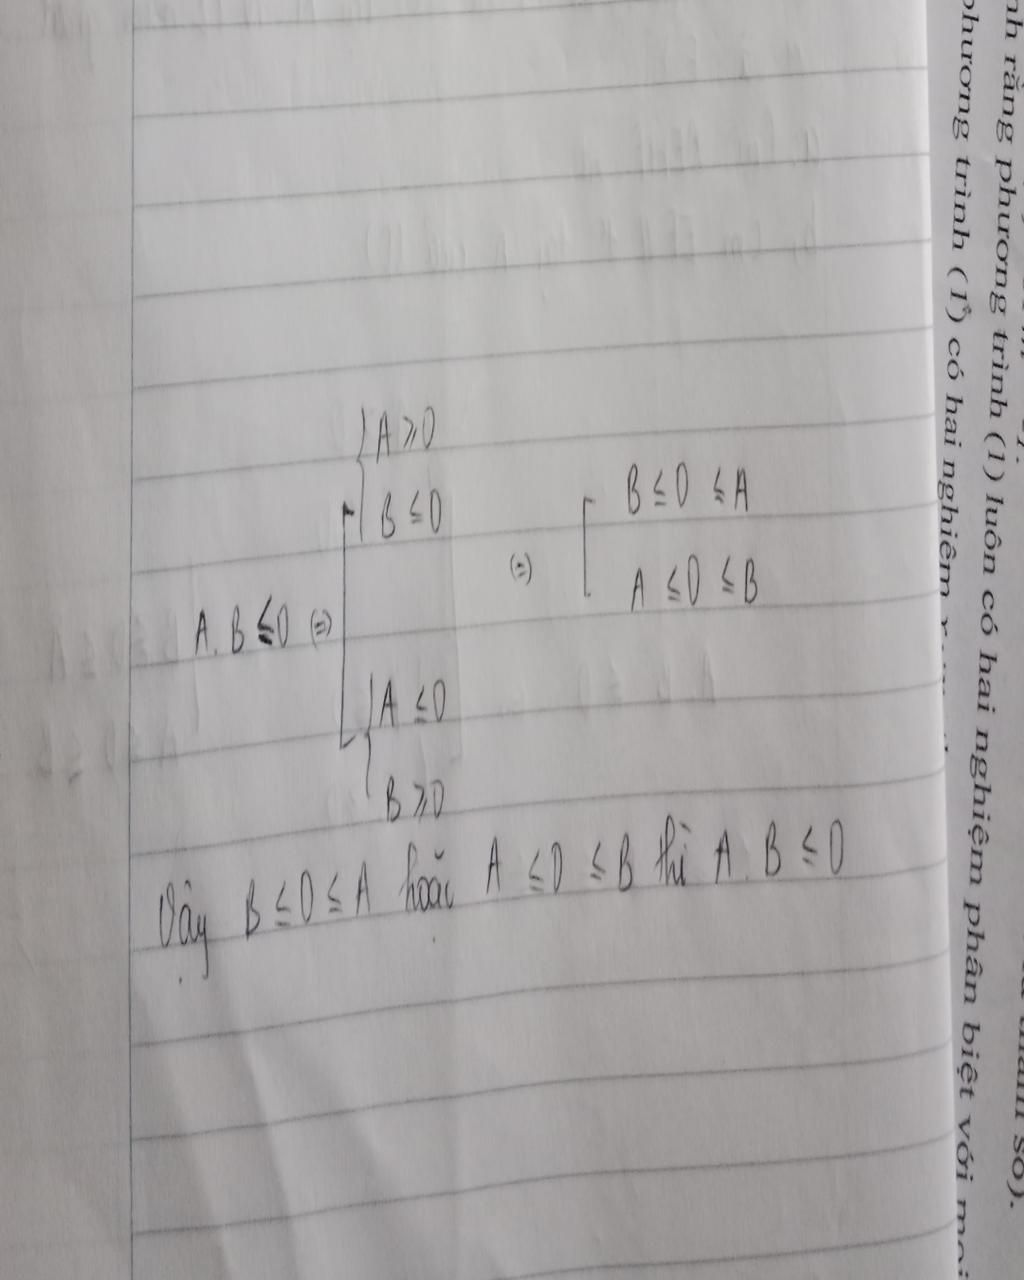 { A ⩾ 0
B ≤ 0
(=) [ B ≤ 0 ≤ A
A ≤ 0 ≤ B
A. B ≤ 0 (=) [
{ A ≤ 0
B ⩾ 0
Vậy B ≤ 0 ≤ A hoặc A ≤ 0 ≤ B thì A. B ≤ 0
rằng phương trình (1) luôn có hai nghiệm phân biệt với mọi
phương trình (1) có hai nghiệm